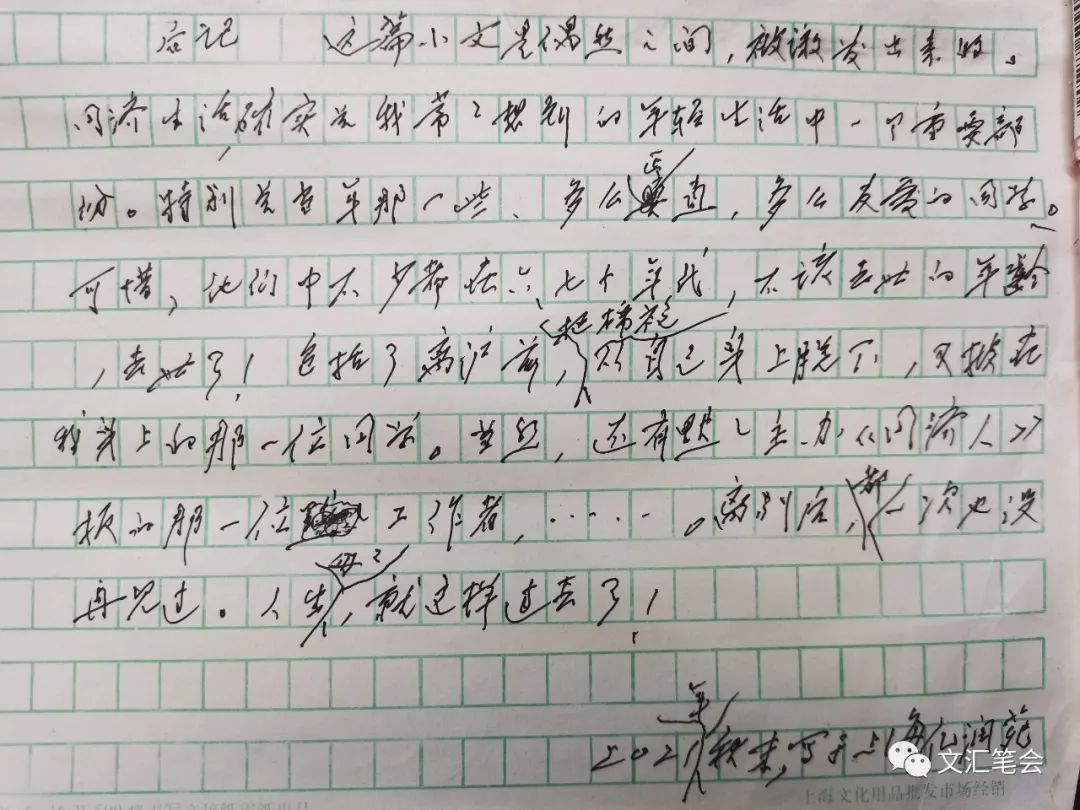 后记 这篇小文是偶然之间，被激发出来的。
同济生活，确实是我常常想到的年轻生活中一个重要部
份。特别是当年那一些、多么正直，多么友爱的同学。
可惜，他们中不少都在六、七十年代，不该去世的年龄
，去世了！包括了离沪前，把棉袄从自己身上脱下，又披在
我身上的那一位同学。当然，还有默默主办《同济人》
板的那一位工作者，……。离别后，都一次也没
再见过。人生，就这样过去了！
2021年秋末，写于上海
文汇笔会
上海文化用品批发市场经销